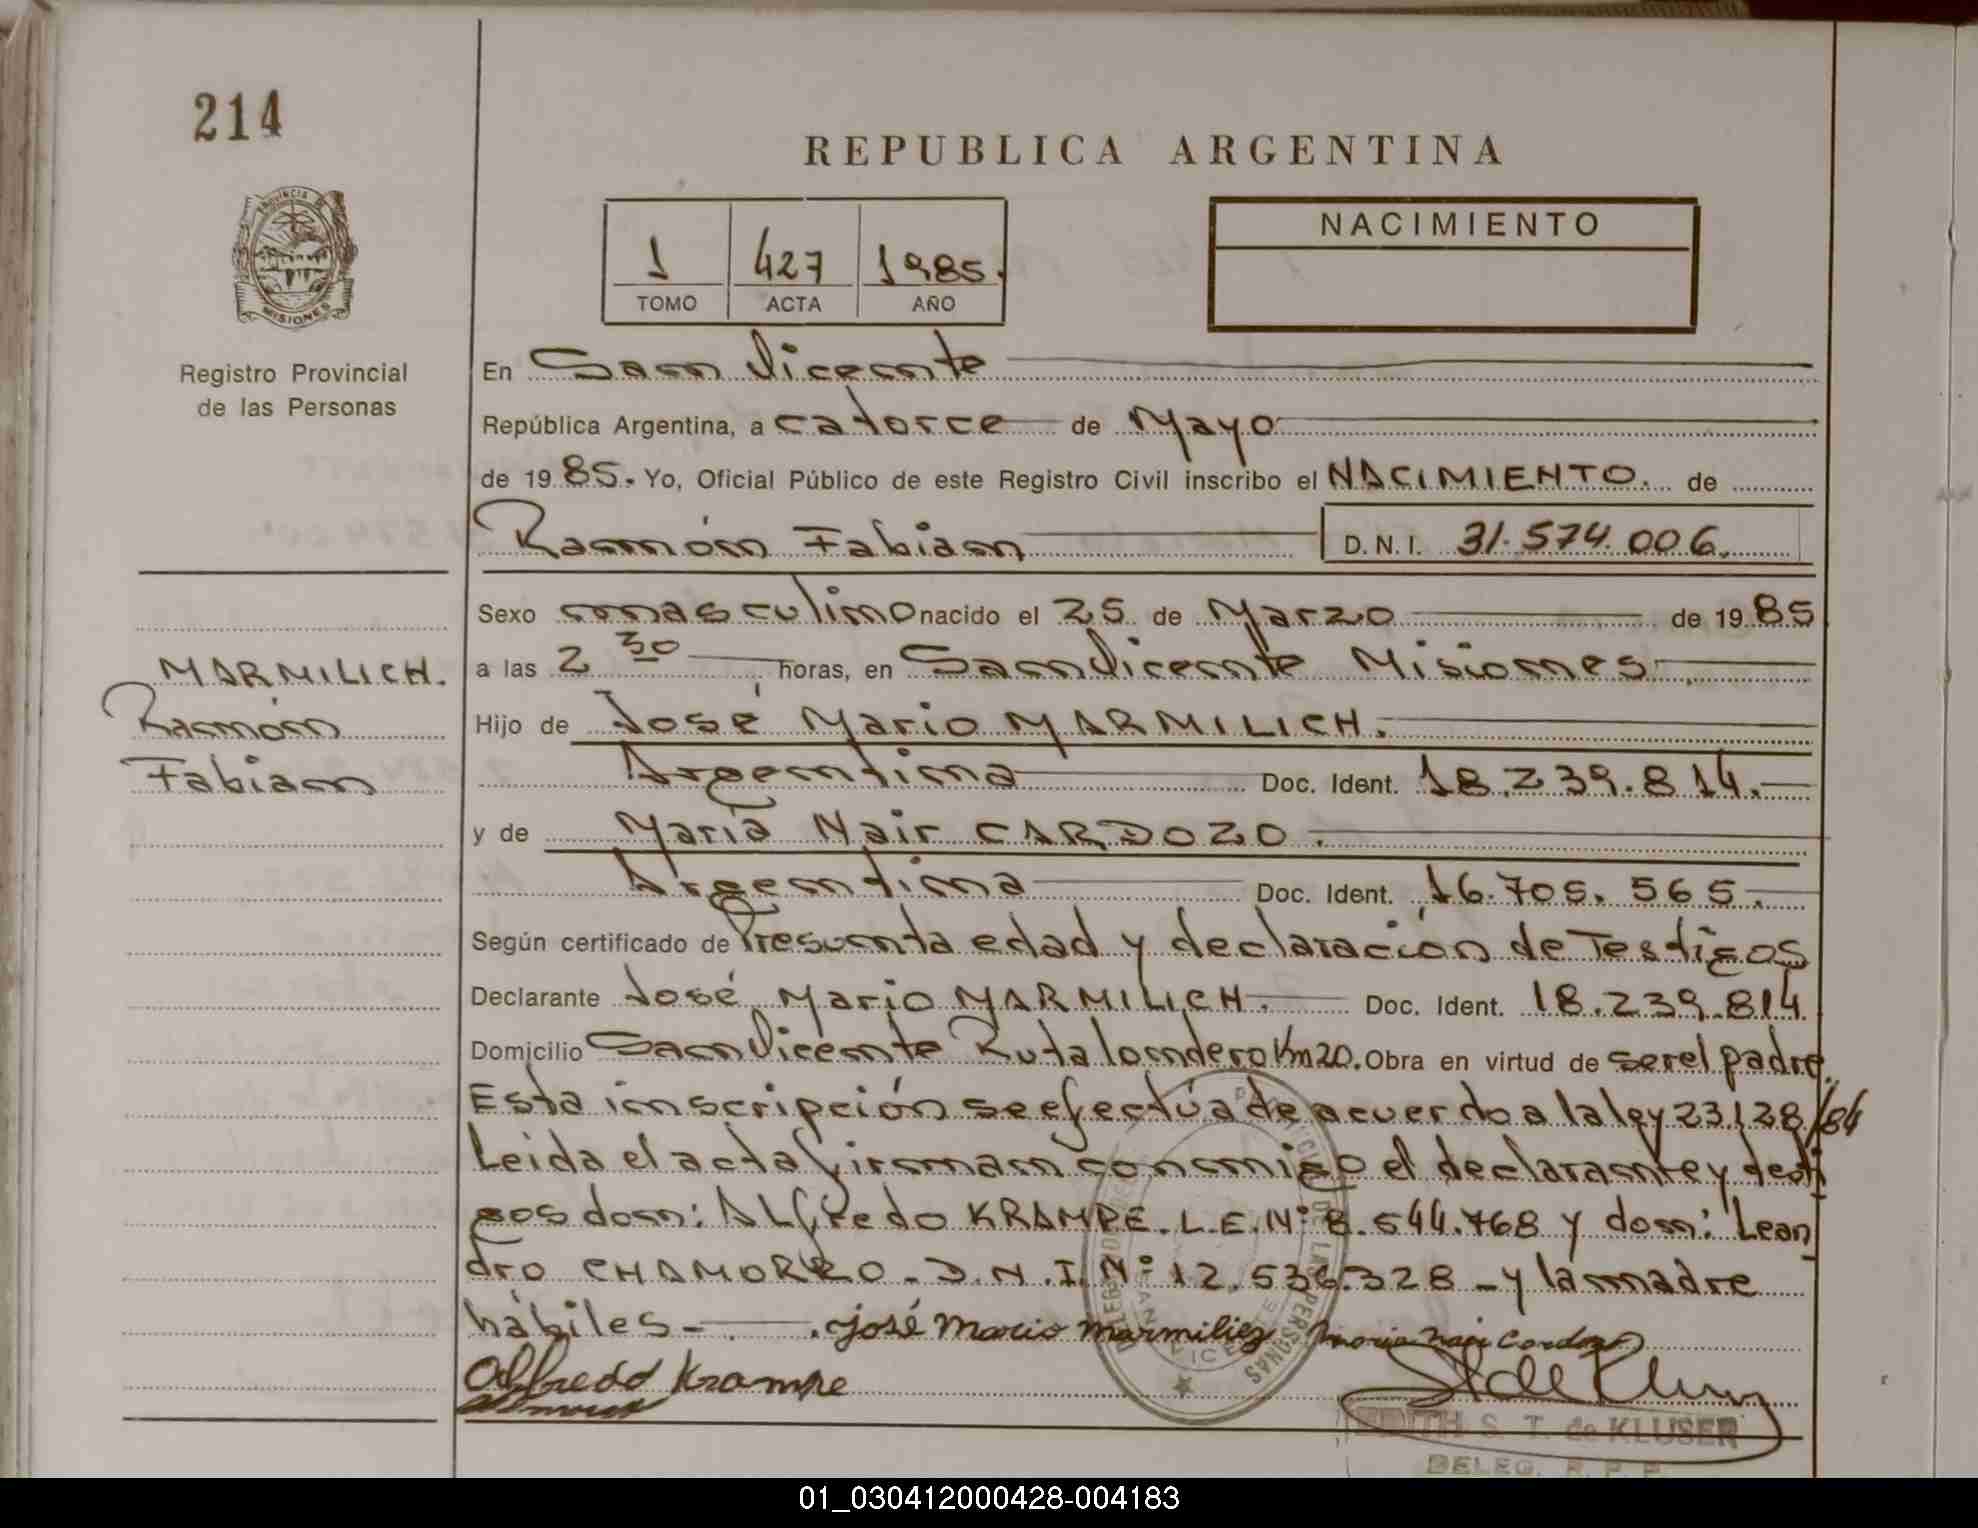 214
REPUBLICA ARGENTINA
PROVINCIA DE
MISIONES
Registro Provincial
de las Personas
1 427 1985.
TOMO ACTA AÑO
NACIMIENTO
En San Vicente
República Argentina, a catorce de Mayo
de 1985. Yo, Oficial Público de este Registro Civil inscribo el NACIMIENTO. de
Ramón Fabian D.N.I. 31.574.006.
Sexo masculino nacido el 25 de Marzo de 1985
a las 2 30 horas, en San Vicente Misiones
MARMILICH.
Ramón
Fabian
Hijo de José Mario MARMILICH.
Argentina Doc. Ident. 18.239.814.
y de María Nair CARDOZO.
Argentina Doc. Ident. 16.705.565.
Según certificado de Presunta edad y declaración de Testigos
Declarante José Mario MARMILICH. Doc. Ident. 18.239.814
Domicilio San Vicente Ruta londero Km 20. Obra en virtud de ser el padre.
Esta inscripción se efectúa de acuerdo a la ley 23.128/84
Leida el acta firman conmigo el declarante y testi
gos don: ALfredo KRAMPE. L.E. Nº 8.544.768 y don: Lean
dro CHAMORRO. D.N.I. Nº 12.536.328 - y la madre
hábiles - . josé Mario Marmiliez Maria Nair Cardozo
Alfredo Krampe
EDITH S. T. de KLUSER
DELEG. R. P. P.
01_030412000428-004183